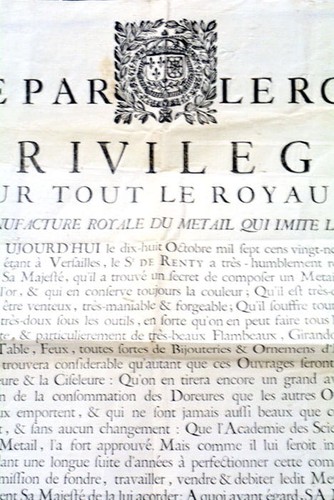 E PAR LERO
RIVILEG
UR TOUT LE ROYAU
NUFACTURE ROYALE DU METAIL QUI IMITE L
UJOURD'HUI le dix-huit Octobre mil sept cens vingt-ne
étant à Versailles, le Sr DE RENTY a très-humblement r
Sa Majesté, qu'il a trouvé un secret de composer un Metai
l'or, & qui en conserve toujours la couleur; Qu'il est très-d
être venteux, très-maniable & forgeable; Qu'il souffre tou
très-doux sous les outils, en sorte qu'on en peut faire tous
te, & particulierement de très-beaux Flambeaux, Girando
Table, Feux, toutes sortes de Bijouteries & Ornemens d'
trouvera considerable qu'autant que ces Ouvrages seront
eure & la Ciseleure: Qu'on en tirera encore un grand a
on de la consommation des Doreures que les autres O
ux emportent, & qui ne sont jamais aussi beaux que ce
t, & sans aucun changement: Que l'Academie des Scie
Metail, l'a fort approuvé. Mais comme il lui seroit in
dant une longue suite d'années à perfectionner cette com
mission de fondre, travailler, vendre & debiter ledit M
ent Sa Majesté de la lui accorder: A quoi ayant égard, S